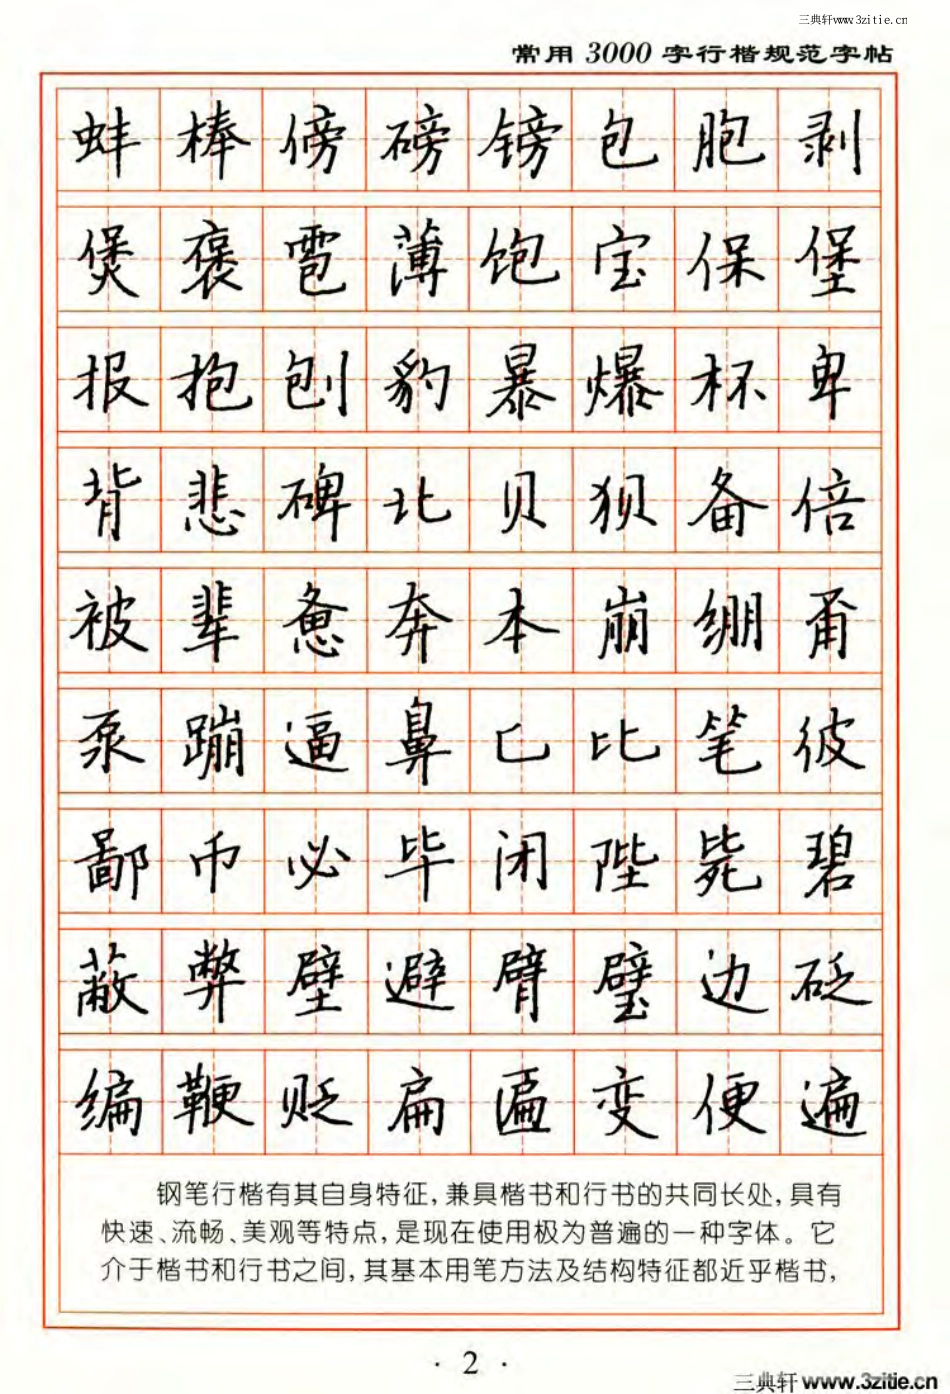 三典轩www.3zitie.cn
常用 3000 字行楷规范字帖
蚌棒傍磅镑包胞剥
煲褒雹薄饱宝保堡
报抱刨豹暴爆杯卑
背悲碑北贝狈备倍
被辈惫奔本崩绷甭
泵蹦逼鼻匕比笔彼
鄙币必毕闭陛毙碧
蔽弊壁避臂璧边砭
编鞭贬扁匾变便遍
钢笔行楷有其自身特征,兼具楷书和行书的共同长处,具有
快速、流畅、美观等特点,是现在使用极为普遍的一种字体。它
介于楷书和行书之间,其基本用笔方法及结构特征都近乎楷书,
· 2 ·
三典轩 www.3zitie.cn